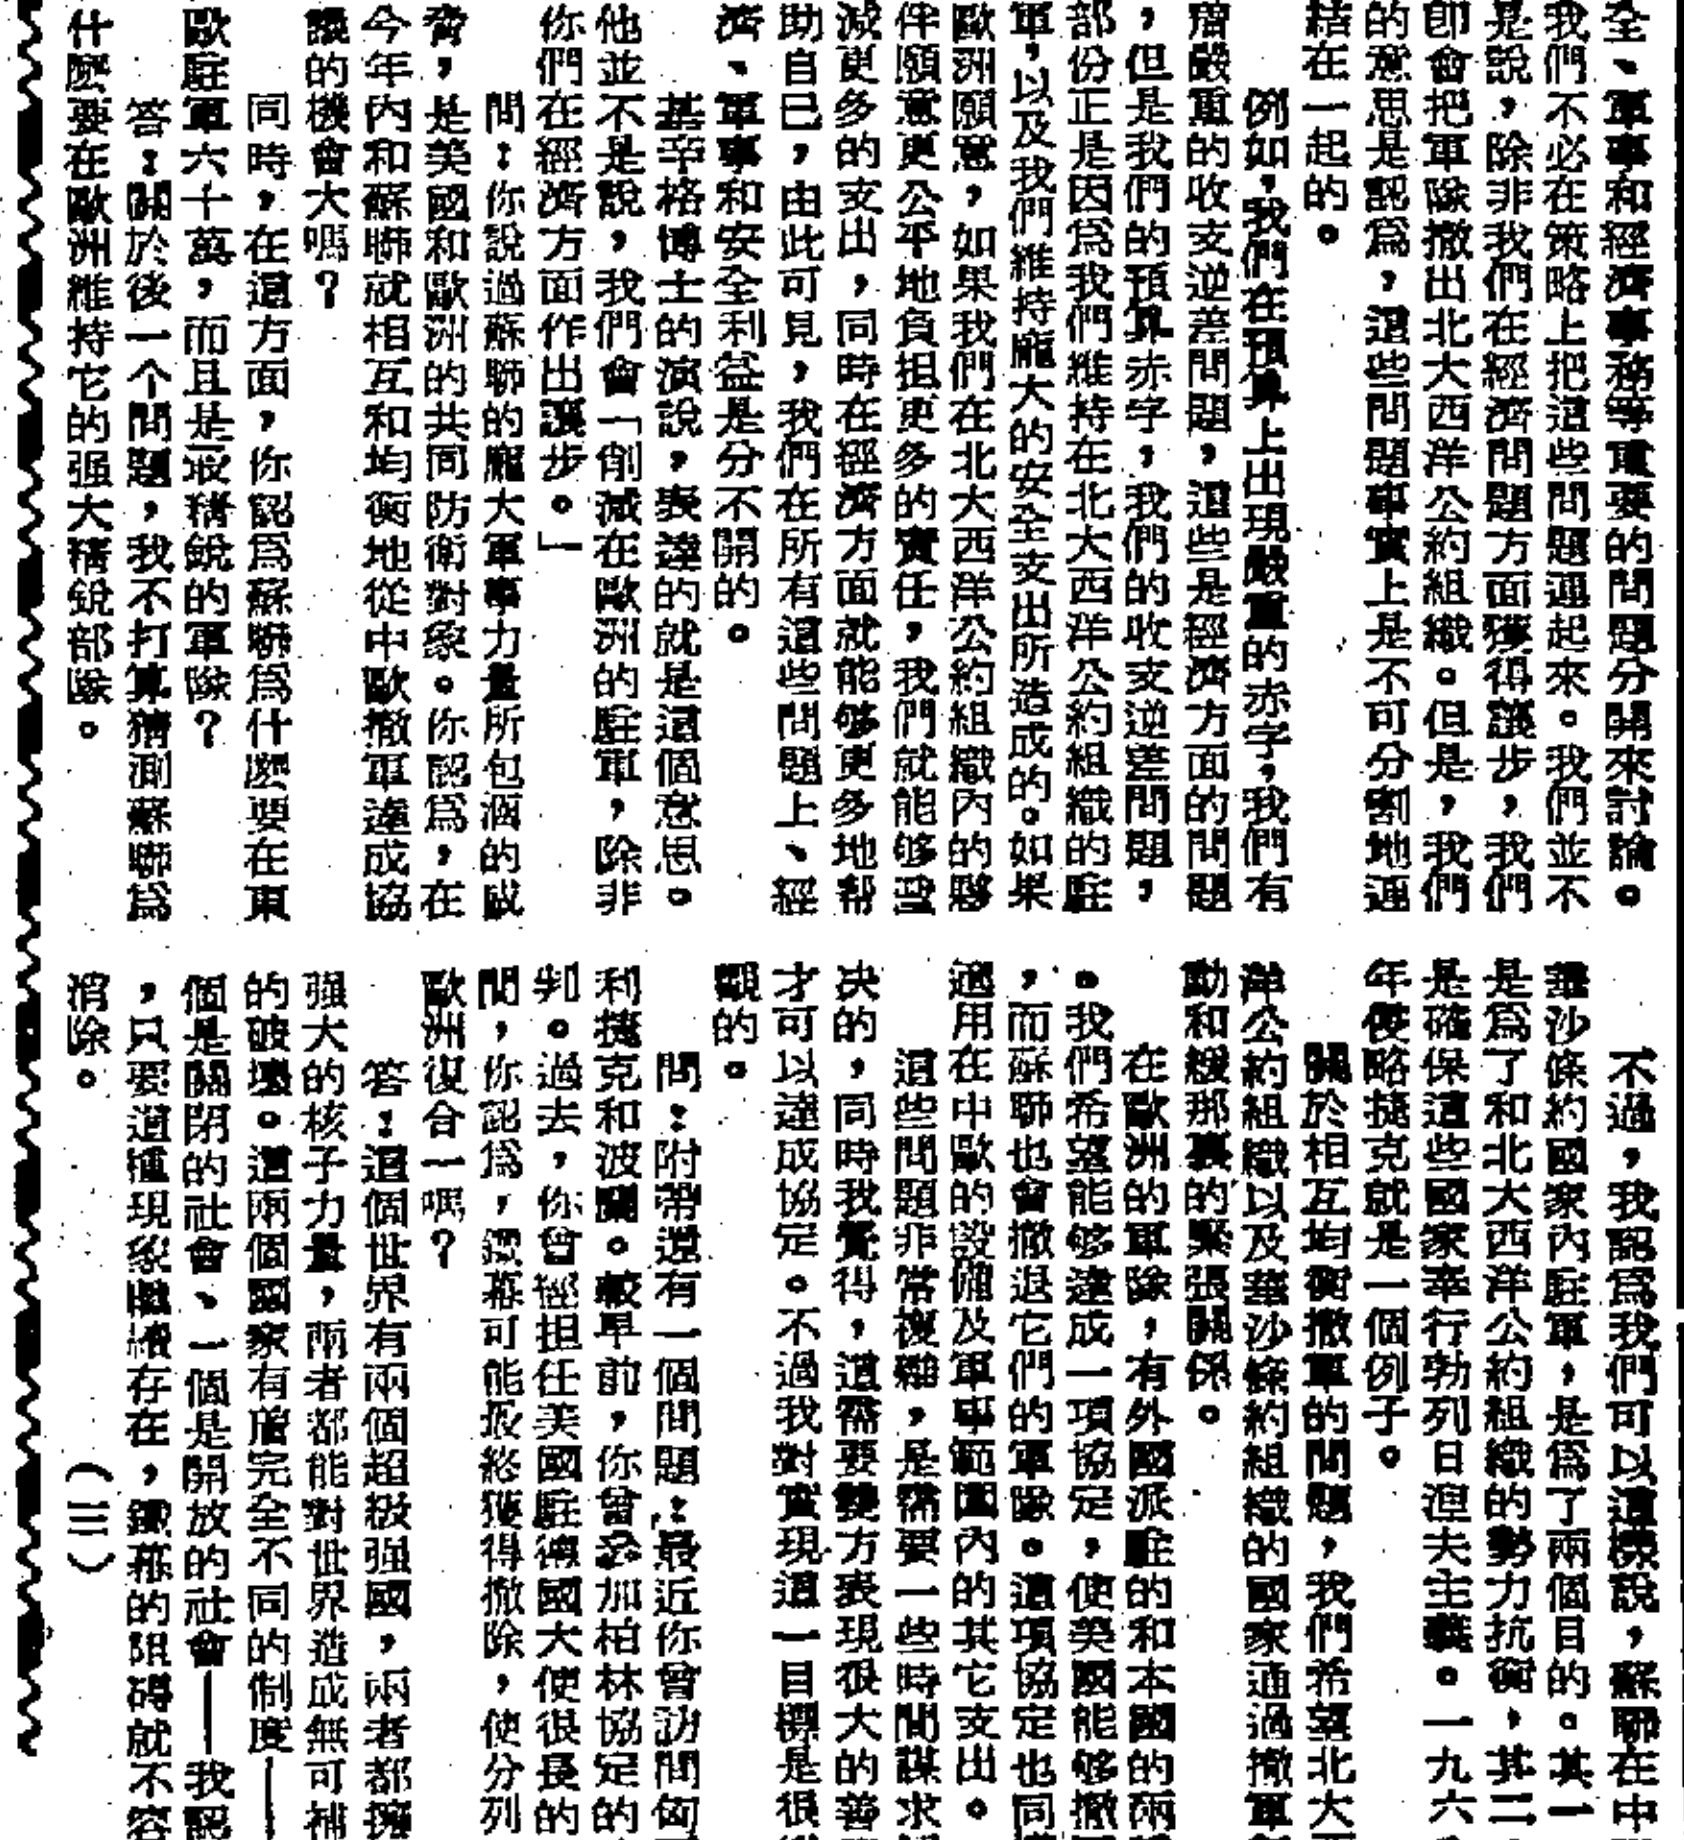 全、軍事和經濟事務等重要的問題分開來討論。
我們不必在策略上把這些問題連起來。我們並不
是說，除非我們在經濟問題方面獲得讓步，我們
卽會把軍隊撤出北大西洋公約組織。但是，我們
的意思是認爲，這些問題事實上是不可分割地連
結在一起的。
例如，我們在預算上出現嚴重的赤字，我們有
着嚴重的收支逆差問題，這些是經濟方面的問題
，但是我們的預算赤字，我們的收支逆差問題，
部份正是因爲我們維持在北大西洋公約組織的駐
軍，以及我們維持龐大的安全支出所造成的。如果
歐洲願意，如果我們在北大西洋公約組織內的夥
伴願意更公平地負担更多的責任，我們就能够
減更多的支出，同時在經濟方面就能够更多地帮
助自已，由此可見，我們在所有這些問題上、經
濟、軍事和安全利益是分不開的。
基辛格博士的演說，表達的就是這個意思。
他並不是說，我們會「削減在歐洲的駐軍，除非
你們在經濟方面作出讓步。」
問：你說過蘇聯的龐大軍事力量所包涵的威
脅，是美國和歐洲的共同防衛對象。你認爲，在
今年內和蘇聯就相互和均衡地從中歐撤軍達成協
議的機會大嗎？
同時，在這方面，你認爲蘇聯爲什麽要在東
歐駐軍六十萬，而且是最精銳的軍隊？
答：關於後一个問題，我不打算猜測蘇聯爲
什麽要在歐洲維持它的强大精銳部隊。
不過，我認爲我們可以這樣說，蘇聯在中
華沙條約國家內駐軍，是爲了兩個目的。其一
是爲了和北大西洋公約組織的勢力抗衡，其二
是確保這些國家奉行勃列日湼夫主義。一九六
年侵略捷克就是一個例子。
關於相互均衡撤軍的問題，我們希望北大
洋公約組織以及華沙條約組織的國家通過撤軍
動和緩那裏的緊張關係。
在歐洲的軍隊，有外國派駐的和本國的兩
。我們希望能够達成一項協定，使美國能够撤
，而蘇聯也會撤退它們的軍隊。這項協定也同
適用在中歐的設備及軍事範圍內的其它支出。
這些問題非常複雜，是需要一些時間謀求
决的，同時我覺得，這需要雙方表現很大的善
才可以達成協定。不過我對實現這一目標是很
觀的。
問：附帶還有一個問題：最近你曾訪問匈
利捷克和波蘭。較早前，你曾參加柏林協定的
判。過去，你曾經担任美國駐德國大使很長的
間，你認爲，鐵幕可能最終獲得撤除，使分列
歐洲復合一嗎？
答：這個世界有兩個超級强國，兩者都擁
强大的核子力量，兩者都能對世界造成無可補
的破壞。這兩個國家有着完全不同的制度——
個是關閉的社會、一個是開放的社會——我認
，只要這種現象繼續存在，鐵幕的阻碍就不容
消除。
（三）